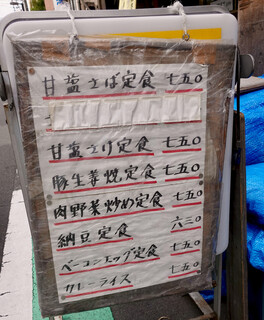 甘塩さば定食 七五〇
甘塩さけ定食 七五〇
豚生姜焼定食 七五〇
肉野菜炒め定食 七五〇
納豆定食 六三〇
ベーコンエッグ定食 七五〇
カレーライス 七五〇